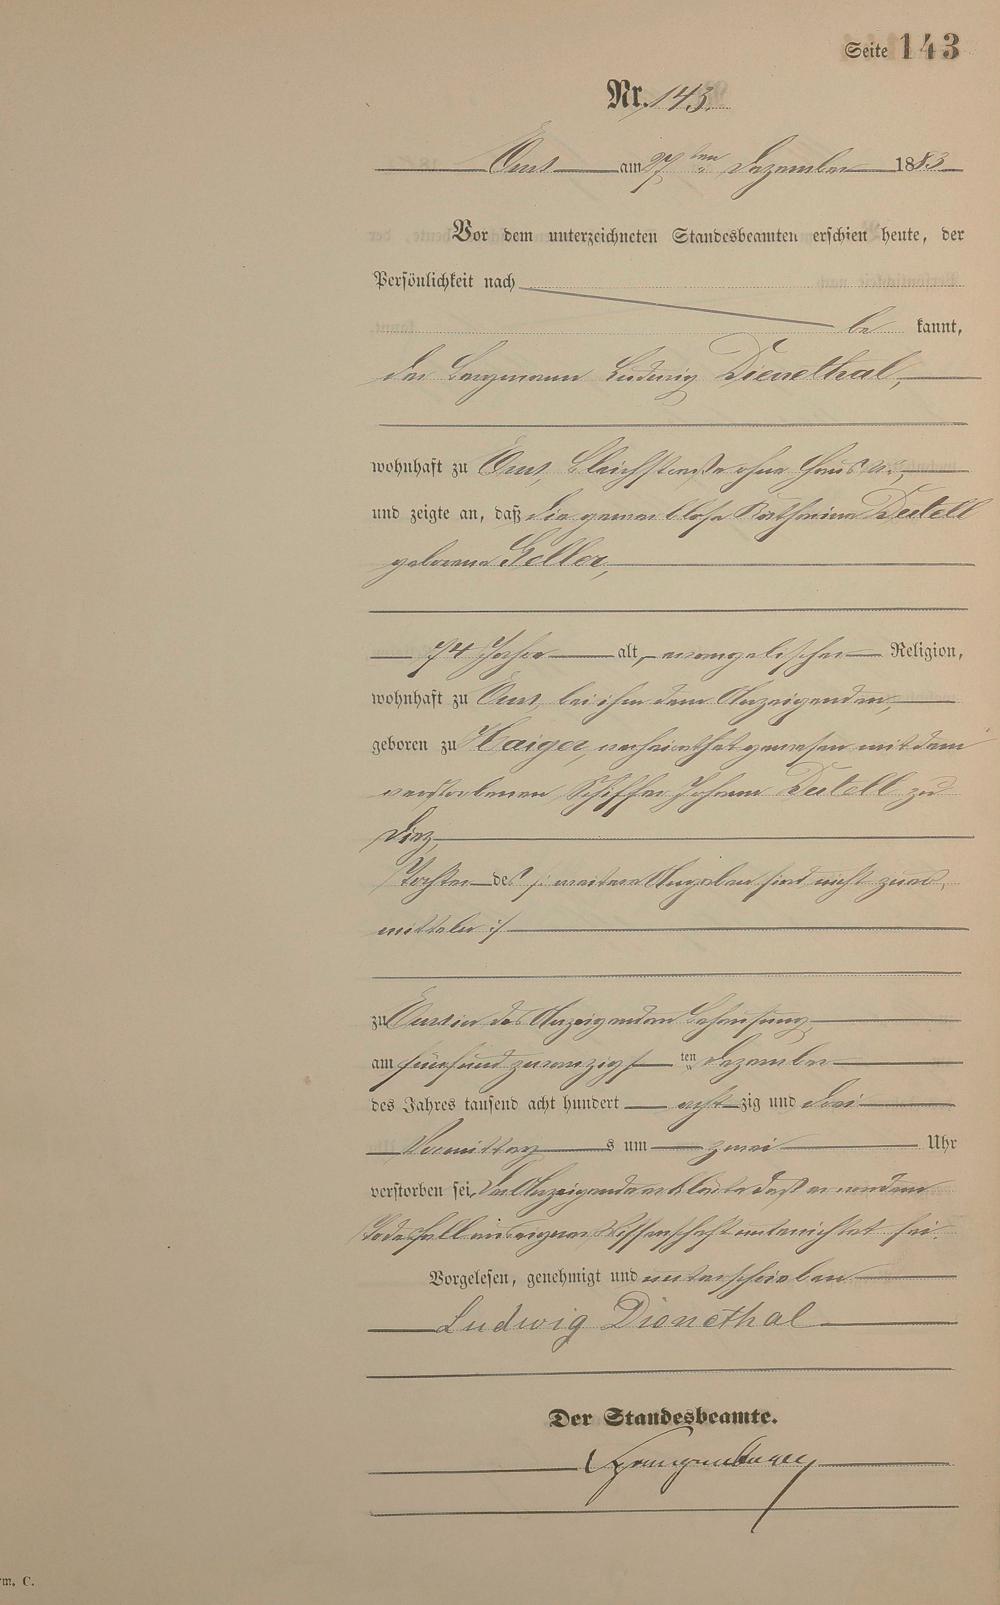 Seite 143
Nr. 143.
Ems am 27ten Dezember 1883
Vor dem unterzeichneten Standesbeamten erschien heute, der
Persönlichkeit nach
be kannt,
der Bergmann Ludwig Dienethal,
wohnhaft zu Ems, Bleichstraße ohne Haus N.,
und zeigte an, daß die gewerblose Katharina Dutell
geborene Geller,
74 Jahre alt, evangelischer Religion,
wohnhaft zu Ems, bei ihm dem Anzeigenden,
geboren zu Haiger, verheirathet gewesen mit dem
verstorbenen Schiffer Johann Dutell zu
Diez,
Tochter des /: weitere Angaben sind nicht zu er,
mitteln :/
zu Ems in des Anzeigenden Behausung,
am fünfund zwanzigs ten Dezember
des Jahres tausend acht hundert acht zig und drei
Vormittag s um zwei Uhr
verstorben sei, Der Anzeigende erklärte daß er von dem
Todesfall aus eigener Wissenschaft unterrichtet sei.
Vorgelesen, genehmigt und unterschrieben
Ludwig Dienethal
Der Standesbeamte.
rm. C.